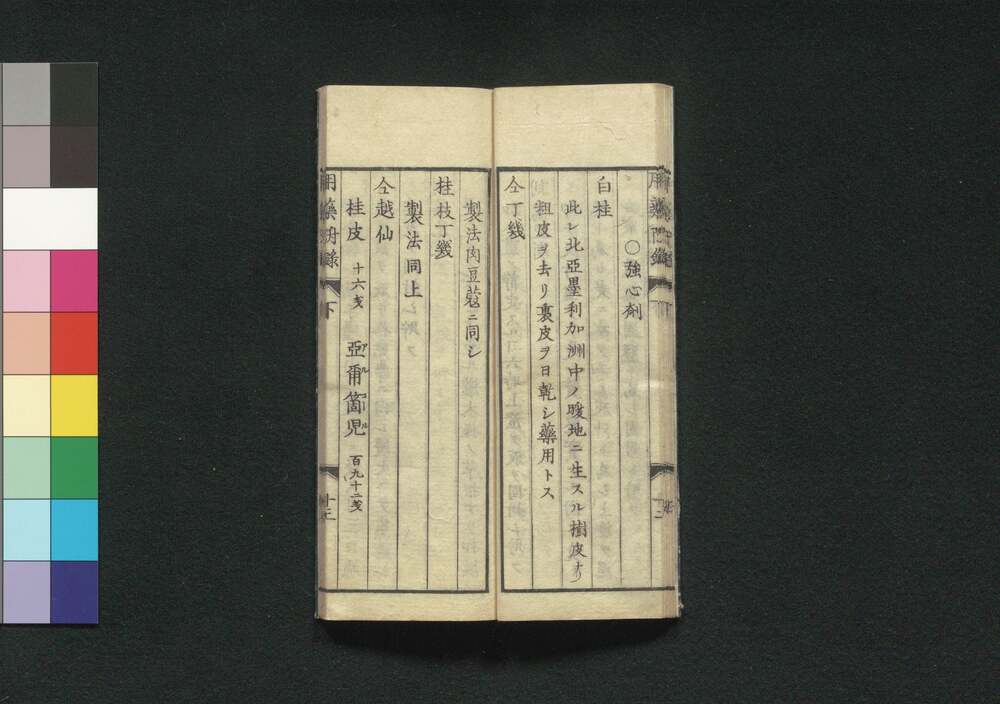 ○強心剤
白桂
此レ北亞墨利加洲中ノ暖地ニ生スル樹皮ナリ
粗皮ヲ去リ裏皮ヲ日乾シ藥用トス
仝丁幾
製法肉豆蔲ニ同シ
桂枝丁幾
製法同上
仝越仙
桂皮 十六戔 亞爾箇児 百九十二戔
下